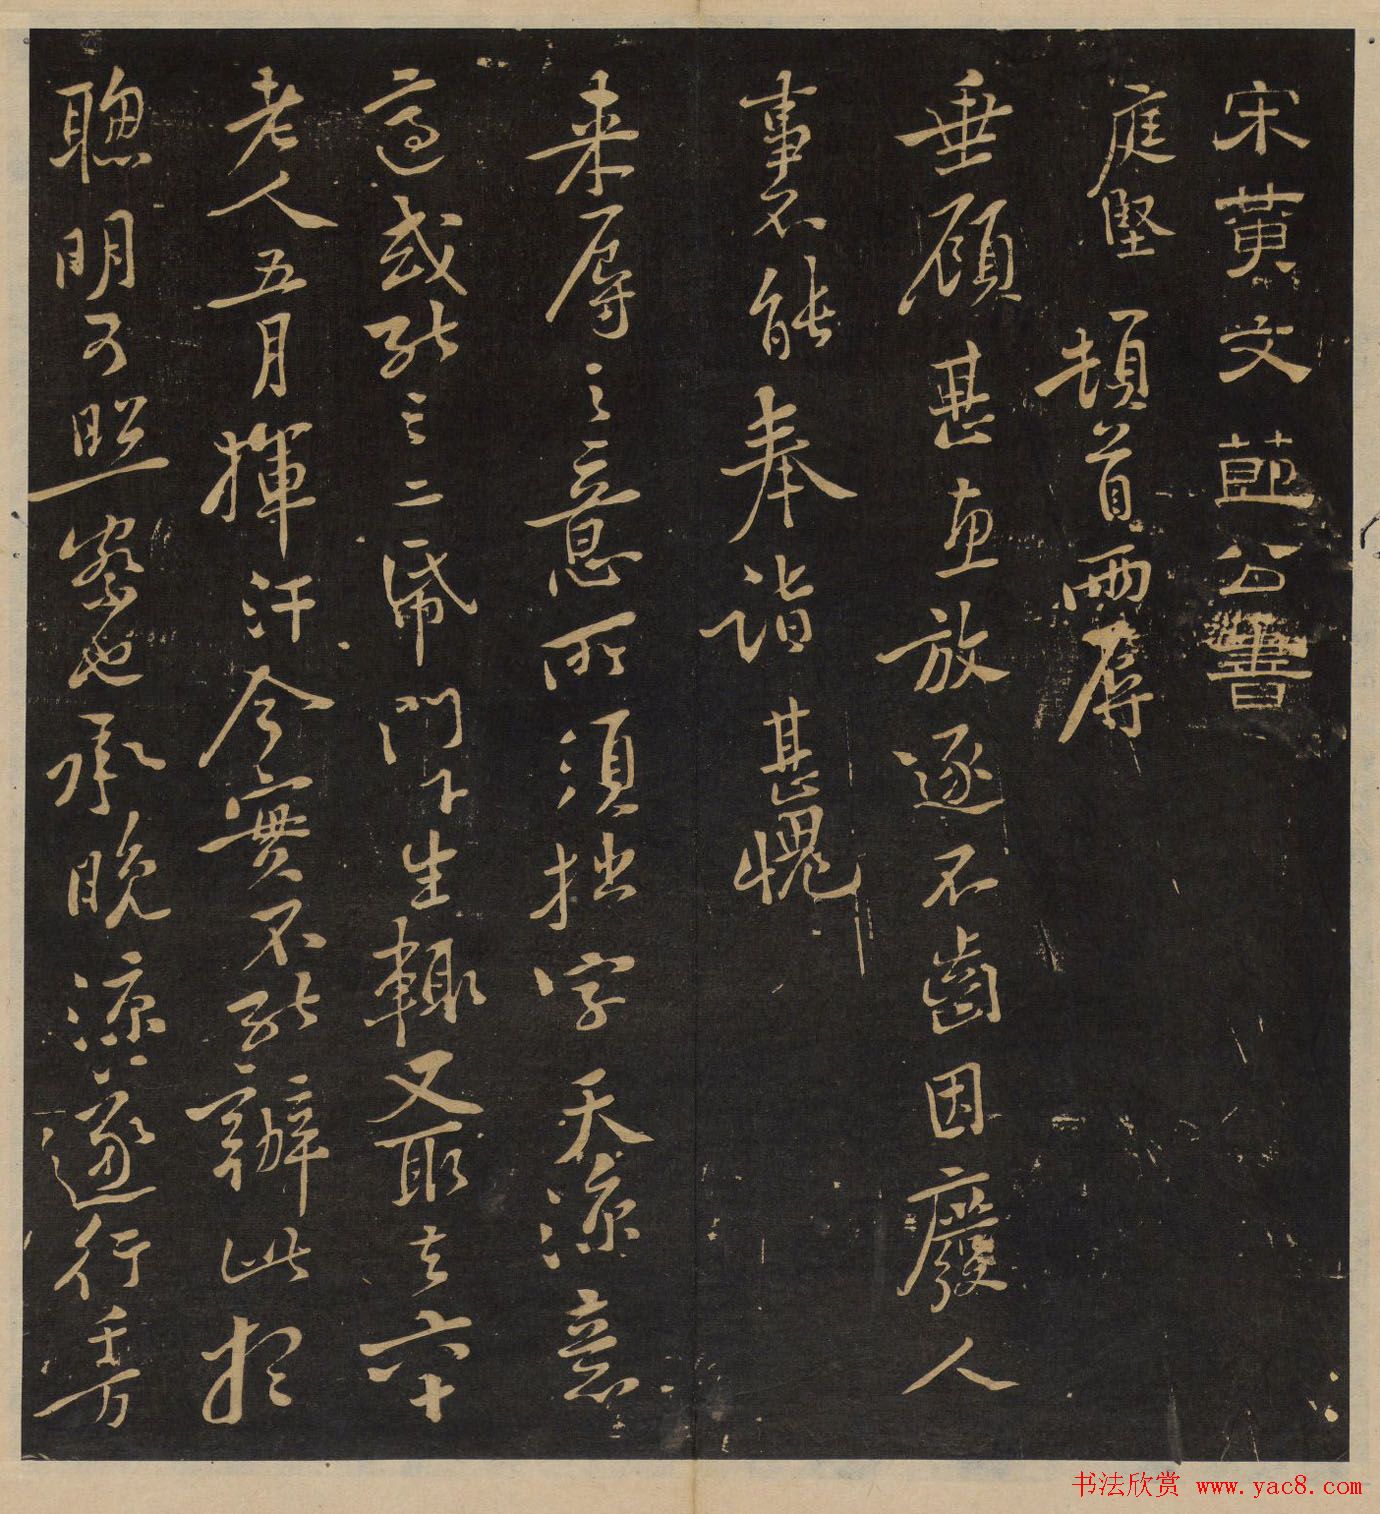 宋黃文節公書
庭堅頓首兩辱
垂顧甚惠放逐不齒因廢人
事不能奉詣甚愧
来辱之意所須拙字天涼意
適或能三二紙門下生輒又取去六十
老人五月揮汗今實不能辦此想
聰明可照察也承晚涼遂行千万
书法欣赏 www.yac8.com